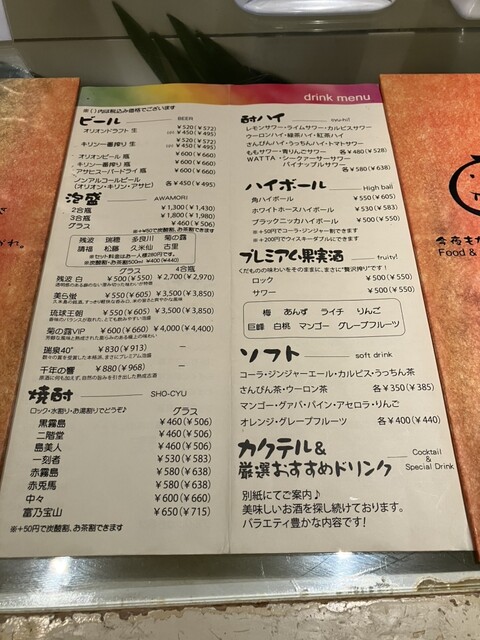 drink menu
※( )内は税込み価格でございます
ビール BEER
オリオンドラフト 生 ¥520(¥572)
¥450(¥495)
キリン一番搾り 生 ¥520(¥572)
¥450(¥495)
・オリオンビール 瓶 ¥600(¥660)
・キリン一番搾り 瓶 ¥600(¥660)
・アサヒスーパードライ 瓶 ¥600(¥660)
ノンアルコールビール
(オリオン・キリン・アサヒ) 各¥450(¥495)
泡盛 AWAMORI
2合瓶 ¥1,300(¥1,430)
3合瓶 ¥1,800(¥1,980)
グラス ¥460(¥506)
※+50円で炭酸割、お茶割できます
残波 瑞穂 多良川 菊の露
請福 松藤 久米仙 古里
※セット料金はお一人様280円です。
※炭酸割、お茶割500ml ¥400(¥440)
グラス 4合瓶
残波 白 ¥500(¥550) ¥2,700(¥2,970)
美ら蛍 ¥550(¥605) ¥3,500(¥3,850)
琉球王朝 ¥550(¥605) ¥3,500(¥3,850)
菊の露VIP ¥600(¥660) ¥4,000(¥4,400)
瑞泉40° ¥830(¥913) ー
千年の響 ¥880(¥968) ー
焼酎 SHO-CYU
ロック・水割り・お湯割りでどうぞ♪ グラス
黒霧島 ¥460(¥506)
二階堂 ¥460(¥506)
島美人 ¥460(¥506)
一刻者 ¥530(¥583)
赤霧島 ¥580(¥638)
赤兎馬 ¥580(¥638)
中々 ¥600(¥660)
富乃宝山 ¥650(¥715)
※+50円で炭酸割、お茶割できます
酎ハイ
レモンサワー・ライムサワー・カルピスサワー
ウーロンハイ・緑茶ハイ・紅茶ハイ
さんぴんハイ・うっちんハイ・トマトサワー
ももサワー・青りんごサワー 各¥480(¥528)
WATTA・シークァーサーサワー
パイナップルサワー
各¥580(¥638)
ハイボール High ball
角ハイボール ¥550(¥605)
ホワイトホース ハイボール ¥530(¥583)
ブラックニッカハイボール ¥500(¥550)
※+50円でコーラ・ジンジャー割できます
※+200円でウィスキーダブルにできます
プレミアム果実酒 fruity!
くだものの味わいをそのままに、まさに"贅沢搾り"です!
ロック ¥500(¥550)
サワー ¥500(¥550)
梅 あんず ライチ りんご
巨峰 白桃 マンゴー グレープフルーツ
ソフト soft drink
コーラ・ジンジャーエール・カルピス・うっちん茶
さんぴん茶・ウーロン茶 各¥350(¥385)
マンゴー・グァバ・パイン・アセロラ・りんご
オレンジ・グレープフルーツ 各¥400(¥440)
カクテル&
厳選おすすめドリンク
Cocktail
&
Special Drink
別紙にてご案内♪
美味しいお酒を探し続けております。
バラエティ豊かな内容です!
Food &